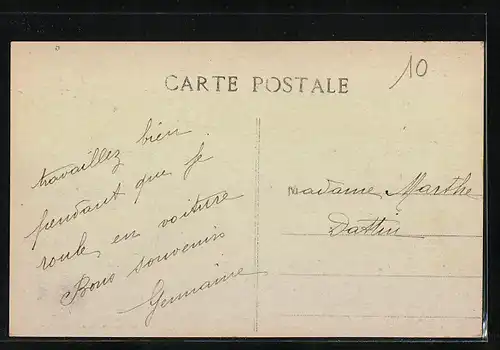 CARTE POSTALE
10
travaillez bien
pendant que je
roule en voiture
Bons souvenirs
Germaine
Madame Marthe
Dattin